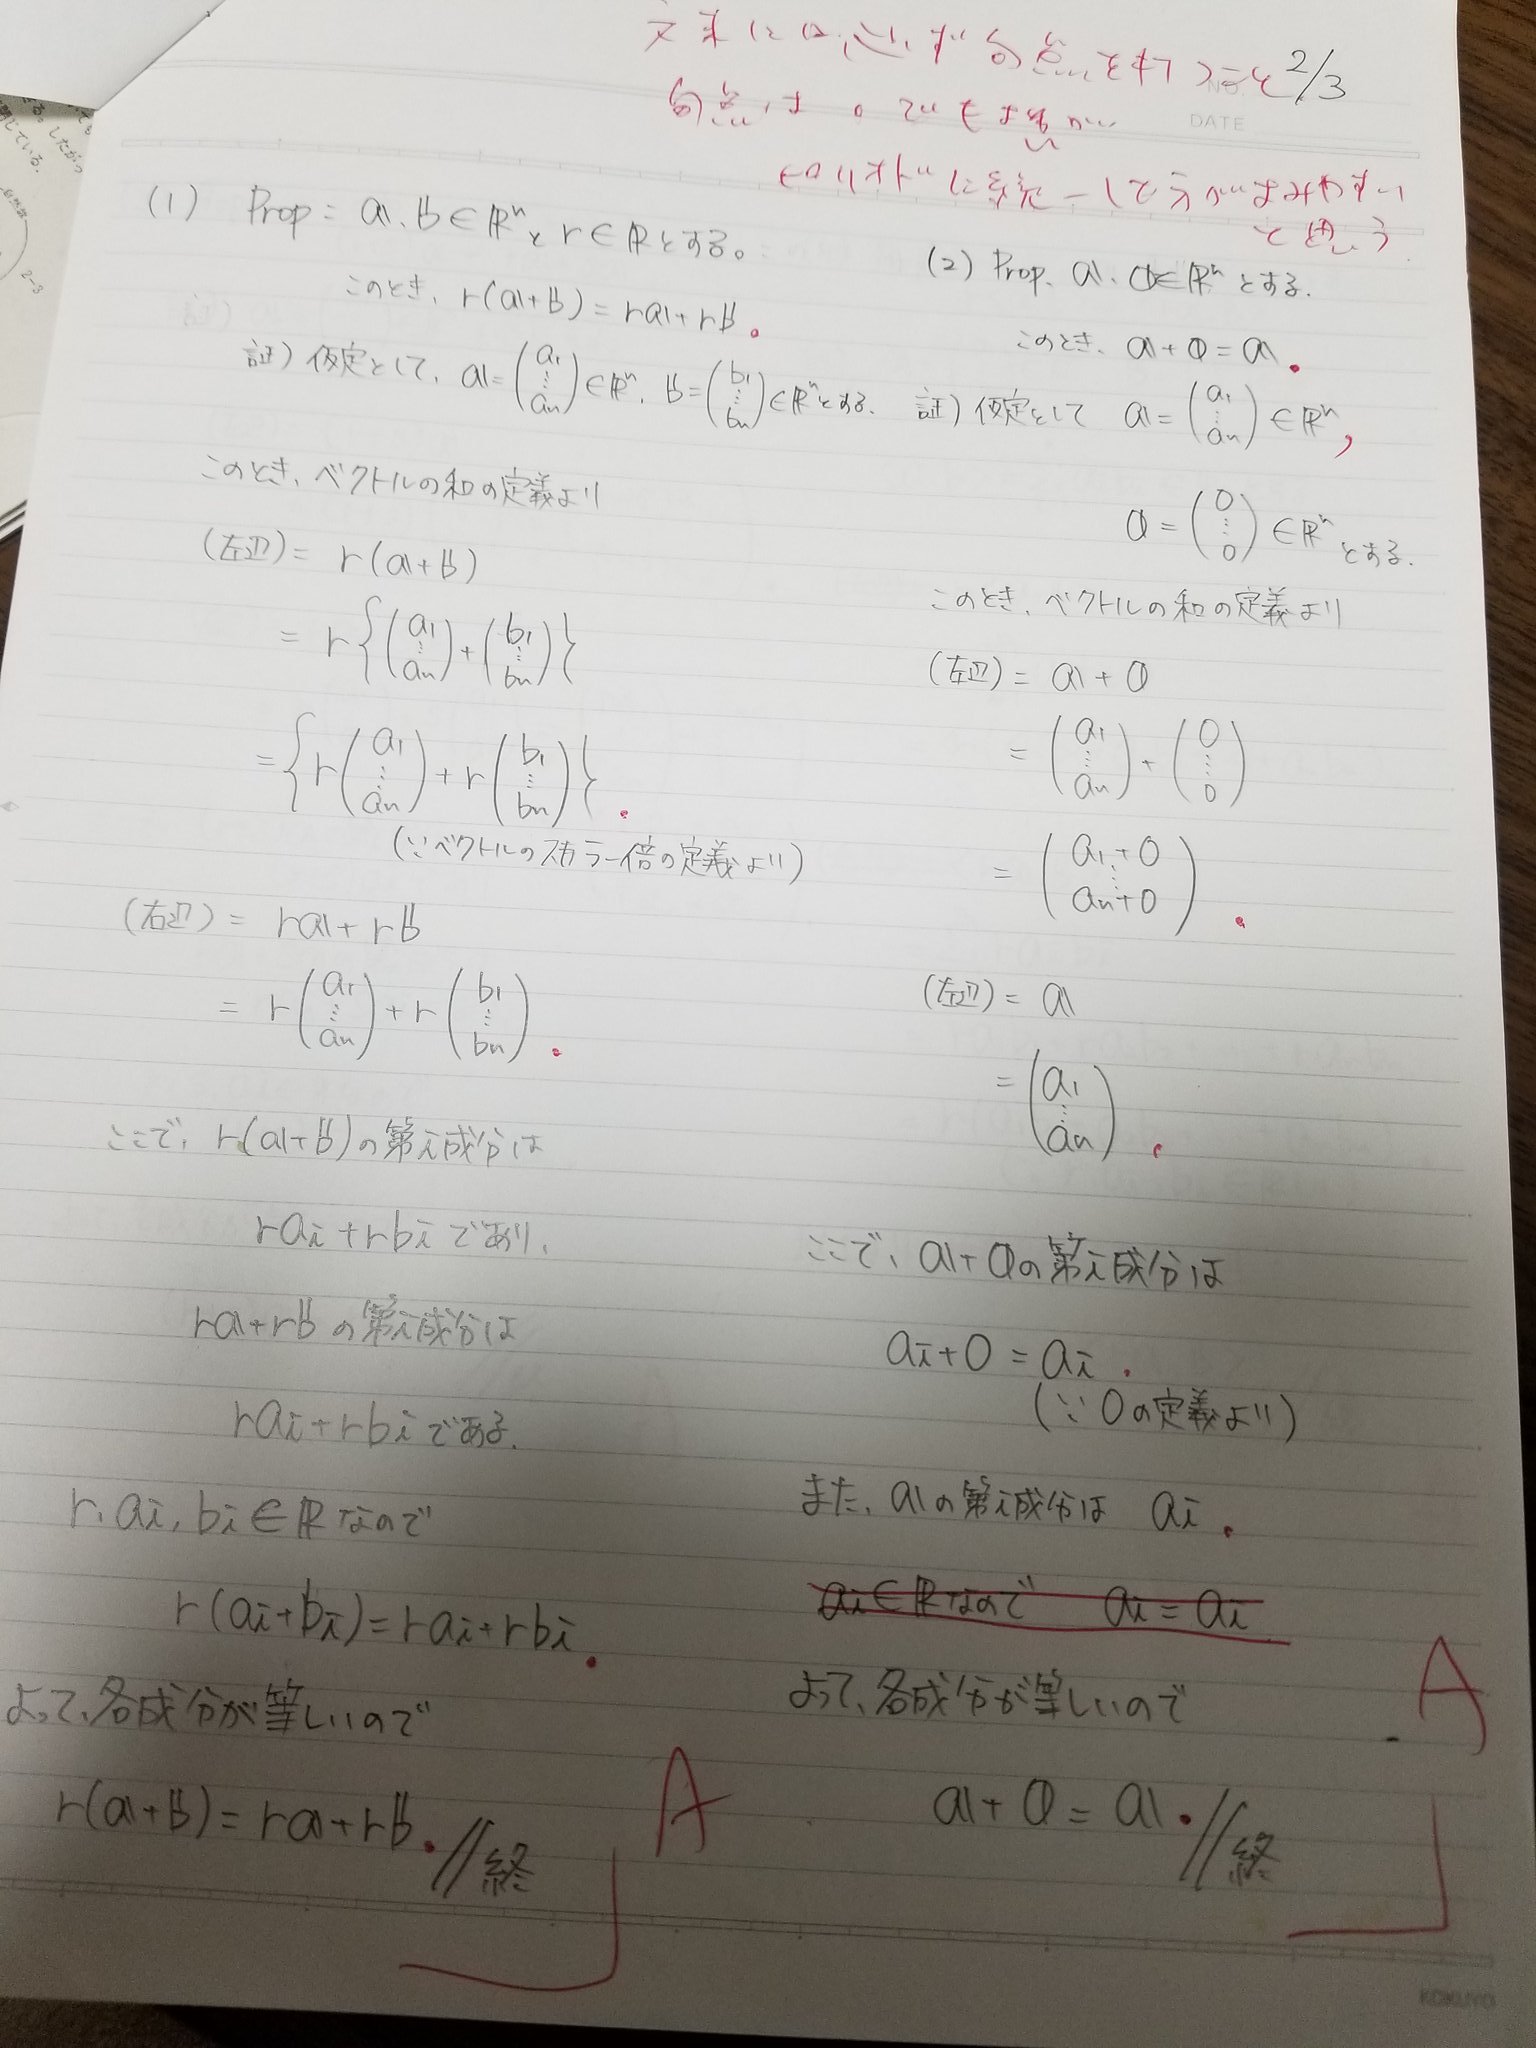 文末には必ず句点を打つこと 2/3
句点は。でもよいが
ピリオドに統一した方がよみやすい
と思う
NO.
DATE
(1) Prop: a, b ∈ ℝⁿ と r ∈ ℝ とする。
このとき, r(a+b) = ra+rb.
証) 仮定として, a = (a₁ ⋮ aₙ) ∈ ℝⁿ, b = (b₁ ⋮ bₙ) ∈ ℝⁿ とする.
このとき, ベクトルの和の定義より
(左辺) = r(a+b)
= r{(a₁ ⋮ aₙ) + (b₁ ⋮ bₙ)}
= {r(a₁ ⋮ aₙ) + r(b₁ ⋮ bₙ)}.
(∵ベクトルのスカラー倍の定義より)
(右辺) = ra+rb
= r(a₁ ⋮ aₙ) + r(b₁ ⋮ bₙ).
ここで, r(a+b)の第i成分は
raᵢ+rbᵢ であり,
ra+rb の第i成分は
raᵢ+rbᵢ である.
r, aᵢ, bᵢ ∈ ℝ なので
r(aᵢ+bᵢ)=raᵢ+rbᵢ.
よって, 各成分が等しいので
r(a+b)=ra+rb. //終
A
(2) Prop. a, 0 ∈ ℝⁿ とする.
このとき, a+0=a.
証) 仮定として a = (a₁ ⋮ aₙ) ∈ ℝⁿ,
0 = (0 ⋮ 0) ∈ ℝⁿ とする.
このとき, ベクトルの和の定義より
(左辺) = a+0
= (a₁ ⋮ aₙ) + (0 ⋮ 0)
= (a₁+0 ⋮ aₙ+0).
(左辺) = a
= (a₁ ⋮ aₙ).
ここで, a+0の第i成分は
aᵢ+0 = aᵢ.
(∵ 0の定義より)
また, aの第i成分は aᵢ.
aᵢ ∈ ℝ なので aᵢ = aᵢ
よって, 各成分が等しいので
a+0 = a. //終
A
KOKUYO